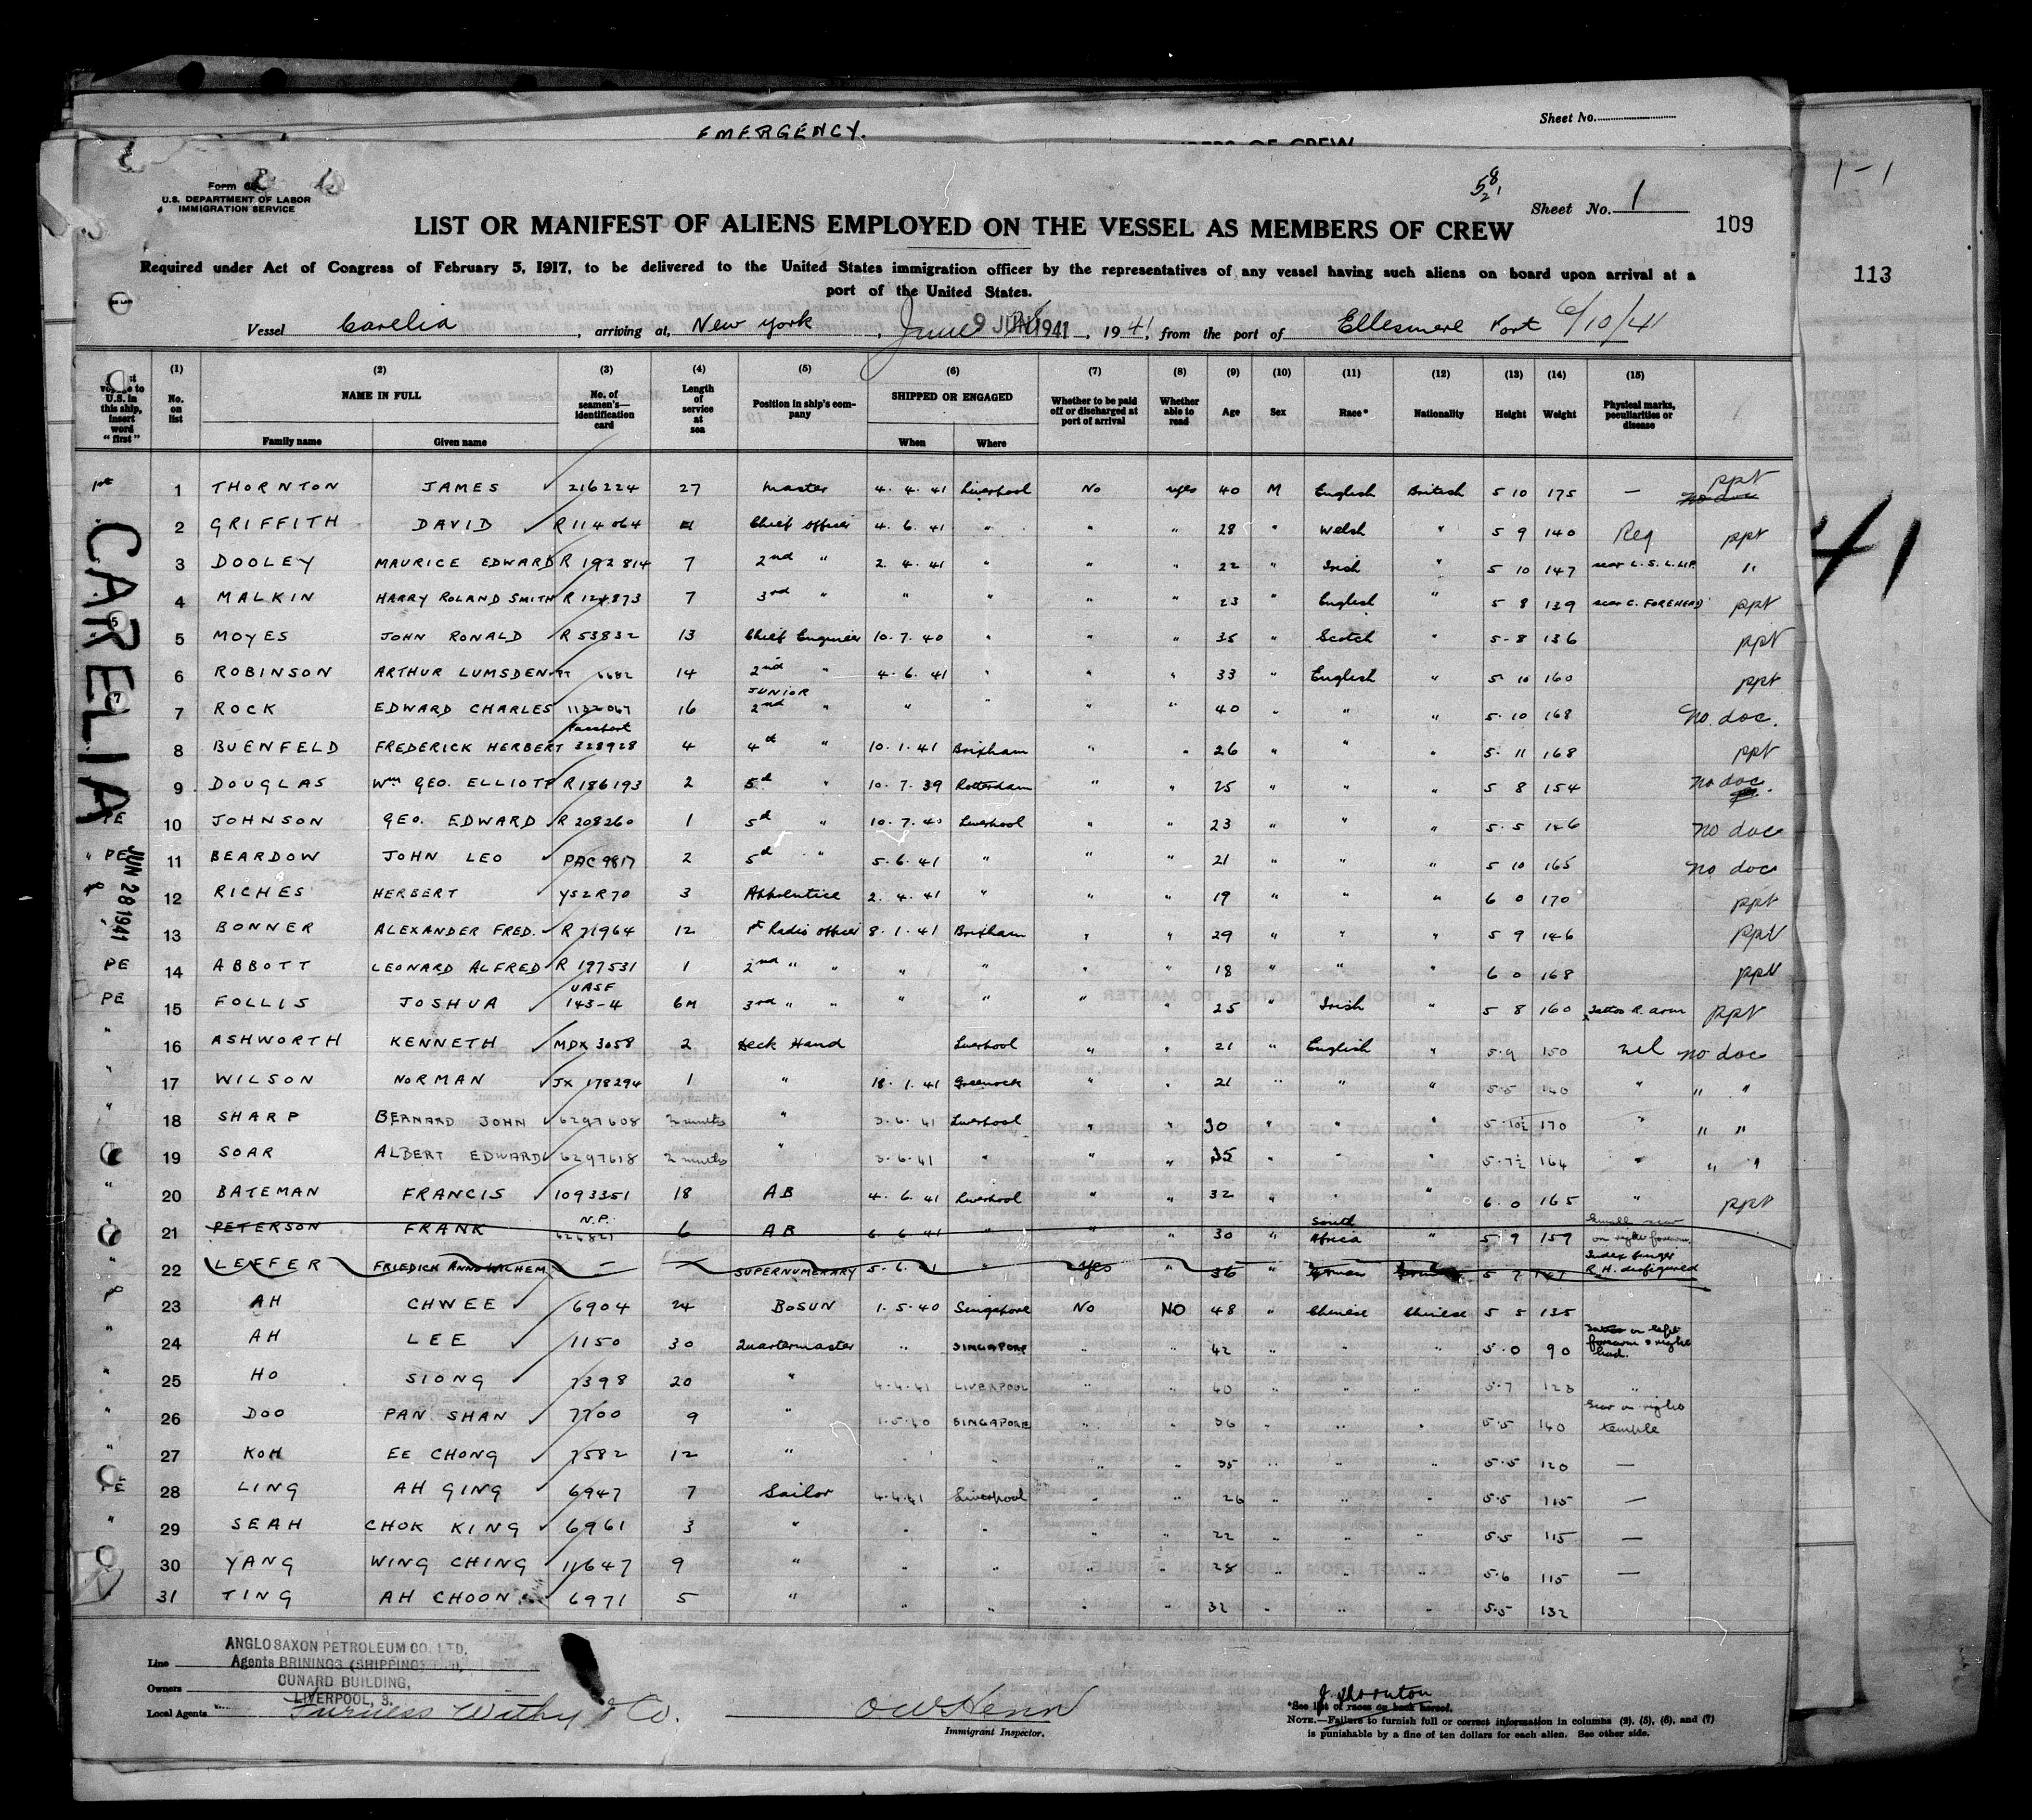 EMERGENCY.
Sheet No.
1-1
Form 6
U.S. DEPARTMENT OF LABOR
IMMIGRATION SERVICE
Sheet No. 1
109
113
LIST OR MANIFEST OF ALIENS EMPLOYED ON THE VESSEL AS MEMBERS OF CREW
Required under Act of Congress of February 5, 1917, to be delivered to the United States immigration officer by the representatives of any vessel having such aliens on board upon arrival at a
port of the United States.
Vessel Carelia, arriving at, New York, June 9 JUN 1941, 1941, from the port of Ellesmere Port 6/10/41
(1) (2) (3) (4) (5) (6) (7) (8) (9) (10) (11) (12) (13) (14) (15)
U.S. in this ship, insert word "first" No. on list NAME IN FULL No. of seamen's identification card Length of service at sea Position in ship's company SHIPPED OR ENGAGED Whether to be paid off or discharged at port of arrival Whether able to read Age Sex Race* Nationality Height Weight Physical marks, peculiarities or disease
Family name Given name When Where
1st 1 THORNTON JAMES 216224 27 Master 4. 4. 41 Liverpool No yes 40 M English British 5 10 175 — ppt no doc
2 GRIFFITH DAVID R 114064 Chief Officer 4. 6. 41 " " " 28 " Welsh " 5 9 140 ppt
3 DOOLEY MAURICE EDWARD R 192814 7 2nd " 2. 4. 41 " " " 22 " Irish " 5 10 147 scar L. S. L. LIP "
4 MALKIN HARRY ROLAND SMITH R 124873 7 3rd " " " " " 23 " English " 5 8 139 scar C. FOREHEAD ppt
5 MOYES JOHN RONALD R 53832 13 Chief Engineer 10. 7. 40 " " " 35 " Scotch " 5-8 136 ppt
6 ROBINSON ARTHUR LUMSDEN 6682 14 2nd " 4. 6. 41 " " " 33 " English " 5 10 160 ppt
7 ROCK EDWARD CHARLES 1132067 16 JUNIOR 2nd " " " " " 40 " " " 5. 10 168 no doc.
8 BUENFELD FREDERICK HERBERT Passport 328928 4 4th " 10. 1. 41 Brixham " " 26 " " " 5. 11 168 ppt
9 DOUGLAS Wm GEO. ELLIOTT R 186193 2 5th " 10. 7. 39 Rotterdam " " 25 " " " 5 8 154 no doc
PE 10 JOHNSON GEO. EDWARD R 208260 1 5th " 10. 7. 40 Liverpool " " 23 " " " 5. 5 146 no doc
" PE 11 BEARDOW JOHN LEO PAC 9817 2 5th " 5. 6. 41 " " " 21 " " " 5 10 165 no doc
12 RICHES HERBERT YS2R70 3 Apprentice 2. 4. 41 " " " 19 " " " 6 0 170 ppt
13 BONNER ALEXANDER FRED. R 71964 12 1st Radio Officer 8. 1. 41 Brixham " " 29 " " " 5 9 146 ppt
PE 14 ABBOTT LEONARD ALFRED R 197531 1 2nd " " " " " " 18 " " " 6 0 168 ppt
PE 15 FOLLIS JOSHUA UASF 143-4 6M 3rd " " " " " " 25 " Irish " 5 8 160 Tattoo R. arm ppt
" 16 ASHWORTH KENNETH MDX 3058 2 Deck Hand Liverpool " " 21 " English " 5.9 150 nil no doc
" 17 WILSON NORMAN JX 178294 1 " 18. 1. 41 Greenock " " 21 " " " 5.5 140 " " "
" 18 SHARP BERNARD JOHN 6297608 2 months " 3. 6. 41 Liverpool " " 30 " " " 5. 10½ 170 " " "
19 SOAR ALBERT EDWARD 6297618 2 months " 3. 6. 41 " " " 35 " " " 5. 7½ 164 " " "
" 20 BATEMAN FRANCIS 1093351 18 AB 4. 6. 41 Liverpool " " 32 " " " 6. 0 165 " ppt
21 PETERSON FRANK N.P. 626821 6 AB 6. 6. 41 " " " 30 " South Africa " 5 9 159 Small scar on right forearm
" 22 LEFFER FRIEDICH ANNO WILHEM — — SUPERNUMERARY 5. 6. 41 " yes " 36 " German 5 7 147 Index finger R. H. disfigured
23 AH CHWEE 6904 24 BOSUN 1. 5. 40 Singapore No NO 48 " Chinese Chinese 5 5 135
" 24 AH LEE 1150 30 Quartermaster " SINGAPORE " " 42 " " " 5. 0 90 Tattoo on left forearm & right hand.
" 25 HO SIONG 7398 20 " 4.4.41 LIVERPOOL " " 40 " " " 5.7 128 "
" 26 DOO PAN SHAN 7700 9 " 1.5.40 SINGAPORE " " 36 " " " 5.5 140 Scar on right temple
" 27 KOH EE CHONG 7582 12 " " " " " 35 " " " 5.5 120 —
PE 28 LING AH GING 6947 7 Sailor 4.4.41 Liverpool " " 26 " " " 5.5 115 —
" 29 SEAH CHOK KING 6961 3 " " " " " 22 " " " 5.5 115 —
30 YANG WING CHING 11647 9 " " " " " 28 " " " 5.6 115 —
31 TING AH CHOON 6971 5 " " " " " 32 " " " 5.5 132
CARELIA
JUN 28 1941
41
Line ANGLO SAXON PETROLEUM CO. LTD.
Agents BRININGS (SHIPPING)
Owners CUNARD BUILDING,
LIVERPOOL, 3.
Local Agents Furness Withy & Co.
Immigrant Inspector.
J. Thornton
*See list of races on back hereof.
NOTE.—Failure to furnish full or correct information in columns (2), (5), (6), and (7)
is punishable by a fine of ten dollars for each alien. See other side.